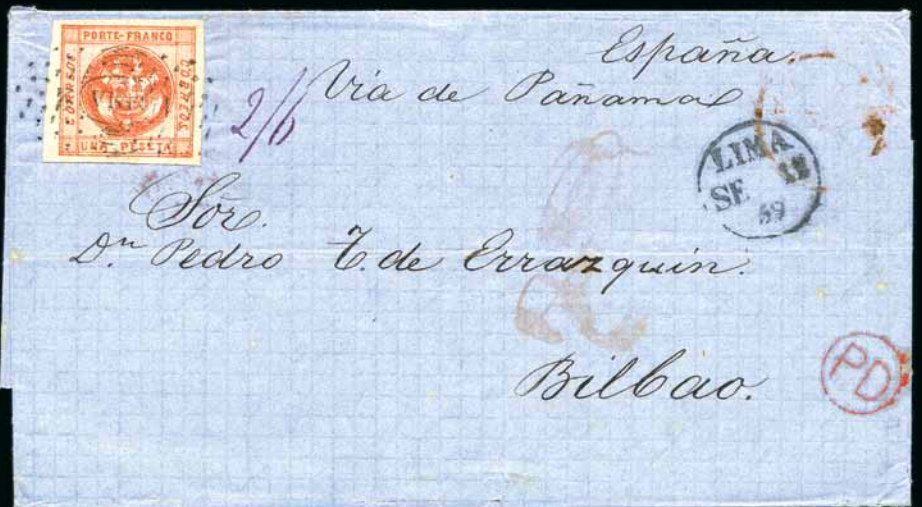 PORTE-FRANCO
CORREOS
UNA PESETA
España.
Via de Pañama
2/6
LIMA
SE 12
69
Sôr.
Dn. Pedro T. de Errazquin.
Bilbao.
PD